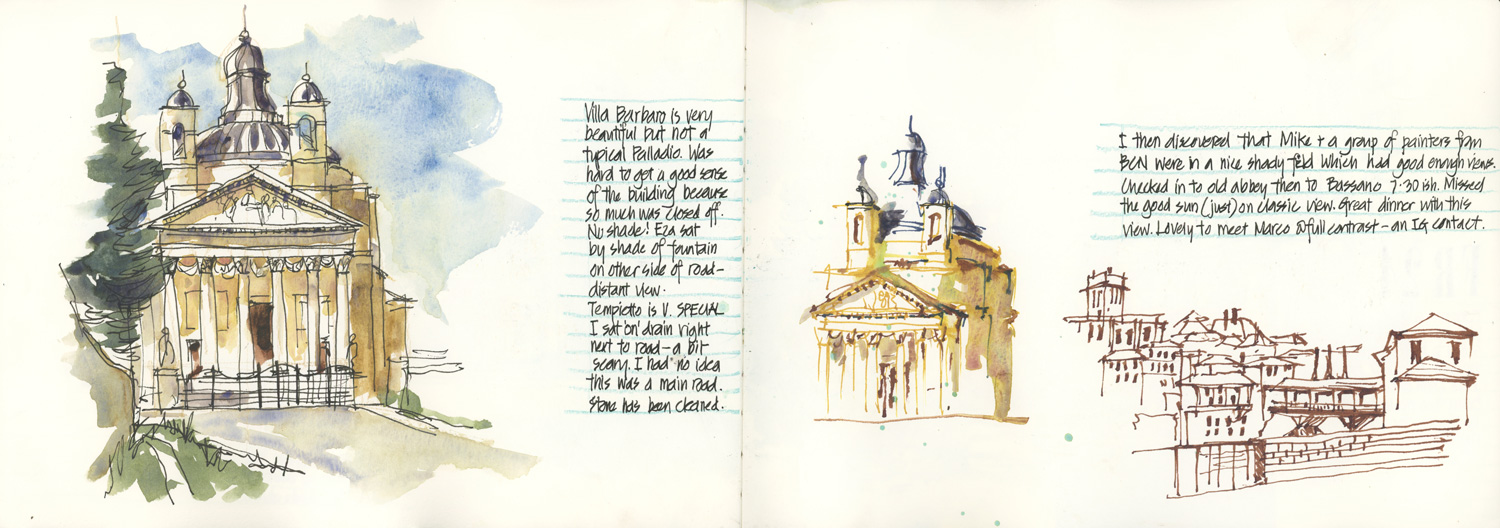 Villa Barbaro is very
beautiful but not a
typical Palladio. Was
hard to get a good sense
of the building because
so much was closed off.
No shade! Eza sat
by shade of fountain
on other side of road-
distant view.
Tempietto is V. SPECIAL
I sat 'on' drain right
next to road - a bit
scary. I had no idea
this was a main road.
Stone has been cleaned.
I then discovered that Mike + a group of painters from
BCN were in a nice shady field which had good enough views.
Checked in to old abbey then to Bassano 7.30 ish. Missed
the good sun (just) on classic view. Great dinner with this
view. Lovely to meet Marco @fullcontrast - an IG contact.